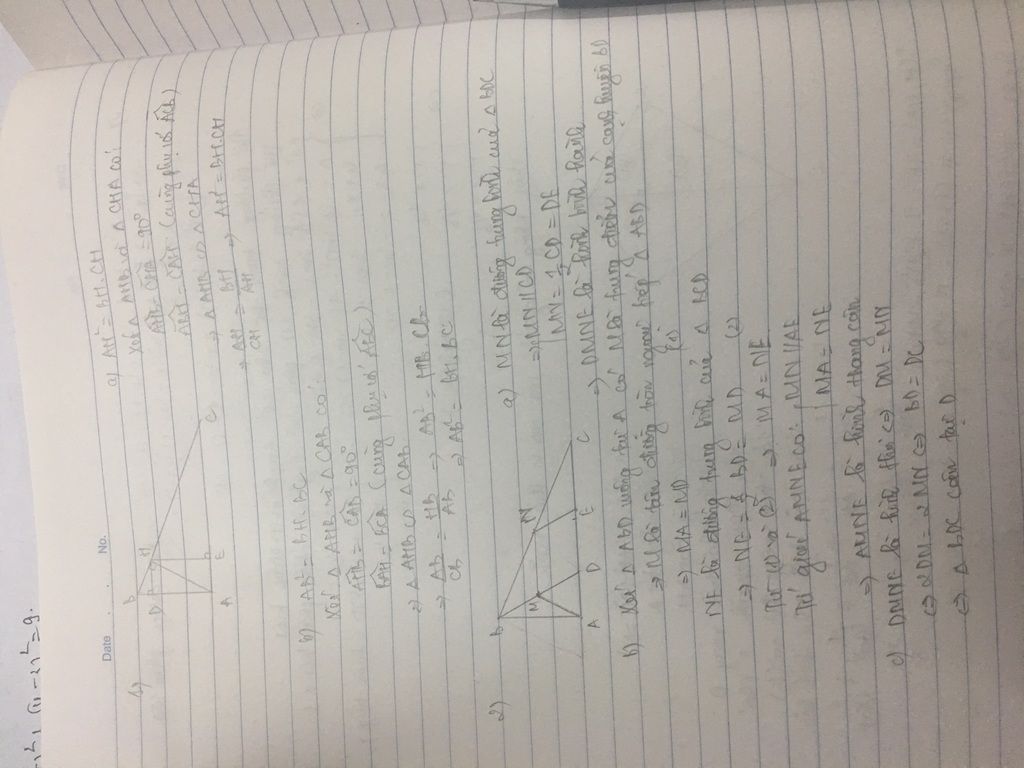 Date . . No.
1)
B
D
H
A
E
C
a) AH² = BH.CH
Xét Δ AHB và Δ CHA có:
AHB = CHA = 90°
(cùng phụ với
⇒ Δ AHB ∽ Δ CHA
⇒ AH/CH = BH/AH ⇒ AH² = BH.CH
b) AB² = BH.BC
Xét Δ AHB và Δ CAB có:
AHB = CAB = 90°
BAH = BCA (cùng phụ với
⇒ Δ AHB ∽ Δ CAB
⇒ AB/CB = HB/AB ⇒ AB² = HB.CB
⇒ AB² = BH.BC
2)
B
M
N
A
D
E
C
a) MN là đường trung bình của Δ BDC
⇒ MN // CD
MN = 1/2 CD = DE
⇒ DMNE là hình bình hành
b) Xét Δ ABD vuông tại A có M là trung điểm của cạnh huyền BD
⇒ M là tâm đường tròn ngoại tiếp Δ ABD
⇒ MA = MD (1)
NE là đường trung bình của Δ BCD
⇒ NE = 1/2 BD = MD (2)
Từ (1) và (2) ⇒ MA = NE
Tứ giác AMNE có: MN // AE
MA = NE
⇒ AMNE là hình thang cân
c) DMNE là hình thoi ⇔ DM = MN
⇔ 2DM = 2MN ⇔ BD = DC
⇔ Δ BDC cân tại D